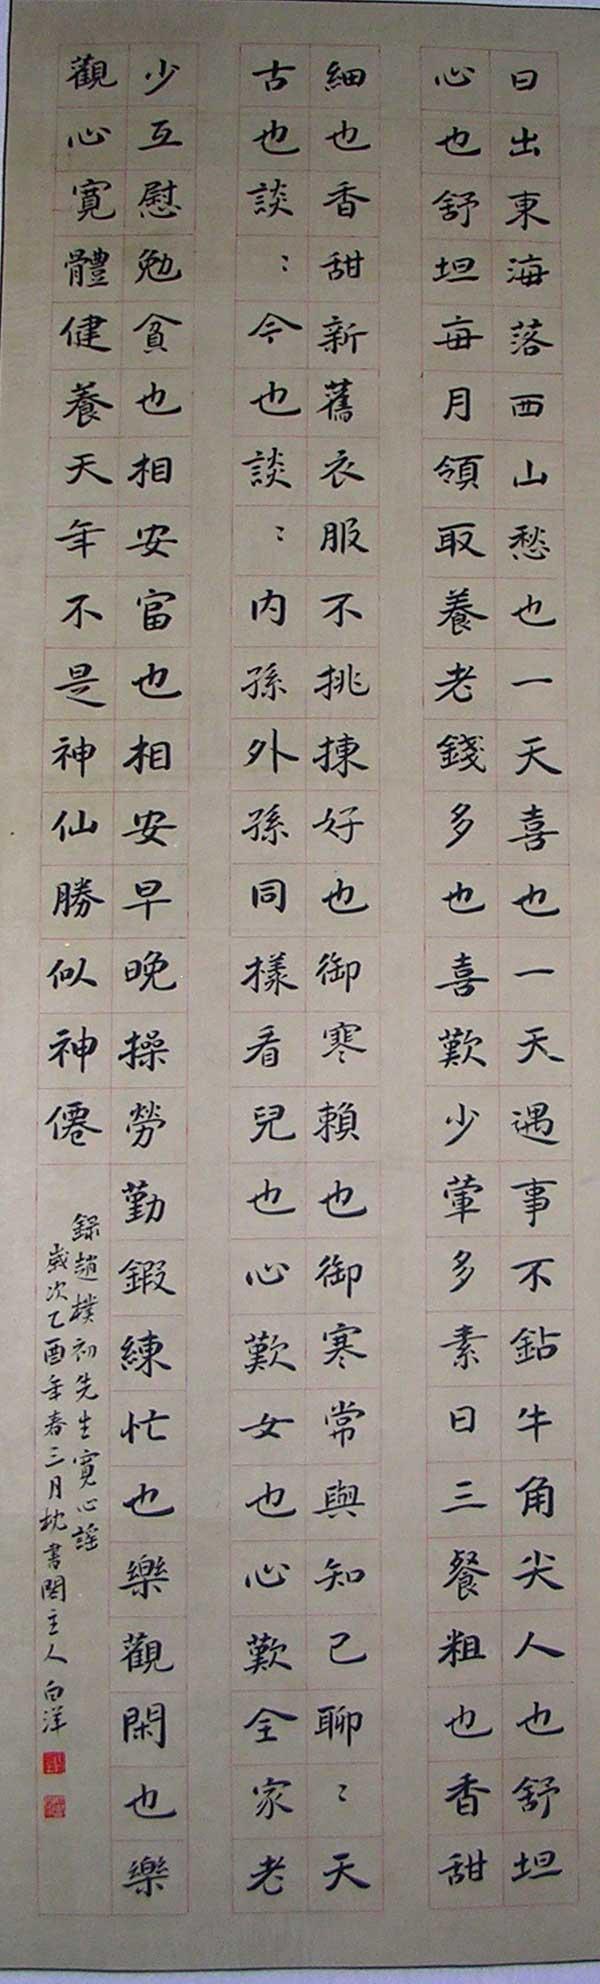 日出東海落西山愁也一天喜也一天遇事不鉆牛角尖人也舒坦
心也舒坦每月領取養老錢多也喜歡少葷多素日三餐粗也香甜
細也香甜新舊衣服不挑揀好也御寒賴也御寒常與知己聊〻天
古也談〻今也談〻內孫外孫同樣看兒也心歡女也心歡全家老
少互慰勉貧也相安富也相安早晚操勞勤鍜練忙也樂觀閑也樂
觀心寬體健養天年不是神仙勝似神僊
錄趙樸初先生寬心謠
歲次乙酉年春三月枕書閣主人白洋